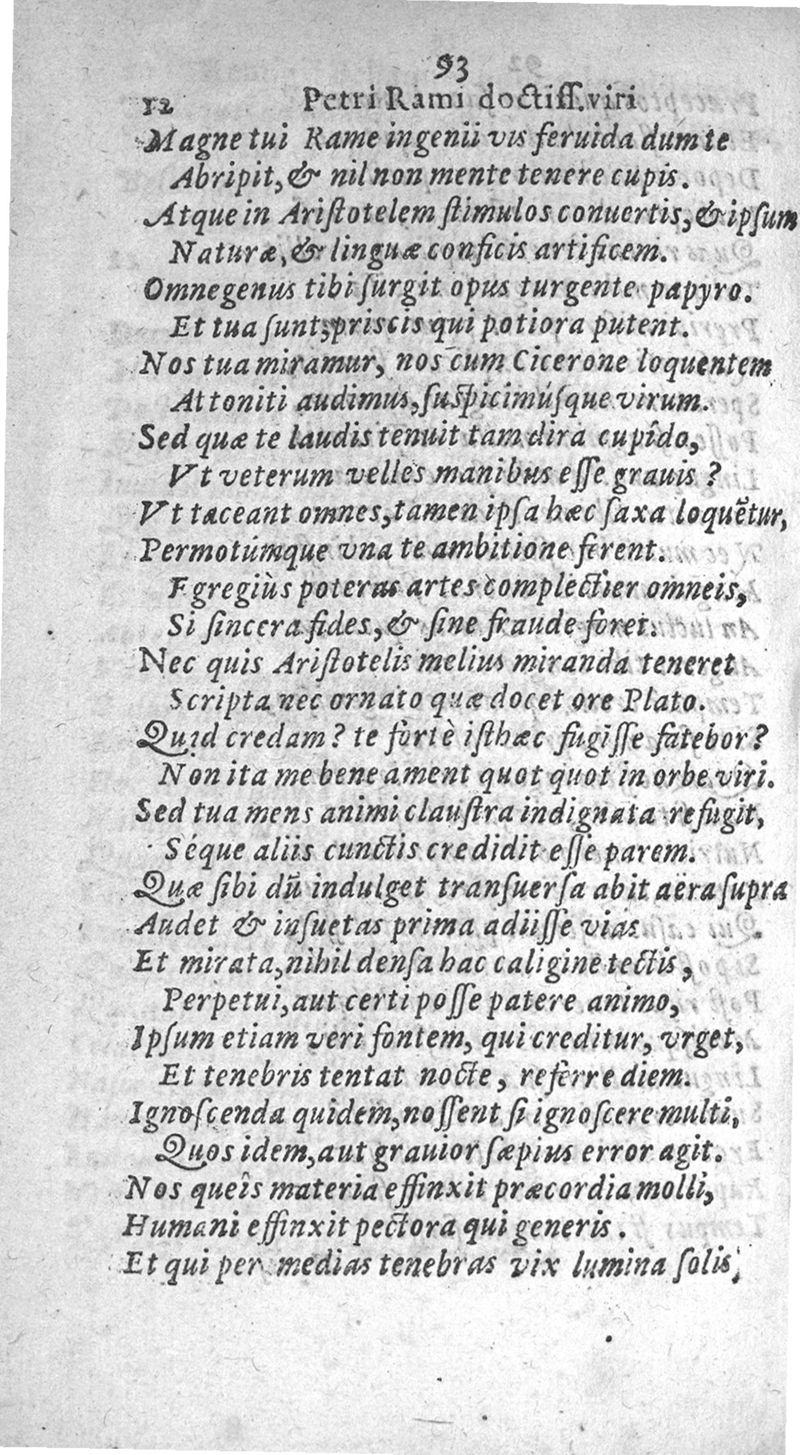 93
12 Petri Rami doctiſſ. viri
Magne tui Rame ingenii vis feruida dum te
Abripit, & nil non mente tenere cupis.
Atque in Ariſtotelem ſtimulos conuertis, & ipſum
Naturæ, & linguæ conficis artificem.
Omnegenus tibi ſurgit opus turgente papyro.
Et tua ſunt, priscis qui potiora putent.
Nos tua miramur, nos cum Cicerone loquentem
Attoniti audimus, ſuſpicimúſque virum.
Sed quæ te laudis tenuit tam dira cupîdo,
Vt veterum velles manibus eſſe grauis ?
Vt taceant omnes, tamen ipſa hæc ſaxa loquẽtur,
Permotúmque vna te ambitione ferent.
Egregiùs poteras artes complectier omneis,
Si ſincera fides, & ſine fraude foret.
Nec quis Ariſtotelis melius miranda teneret
Scripta nec ornato quæ docet ore Plato.
Quid credam ? te fortè iſthæc fugiſſe fatebor ?
Non ita me bene ament quot quot in orbe viri.
Sed tua mens animi clauſtra indignata refugit,
Séque aliis cunctis credidit eſſe parem.
Quæ ſibi dũ indulget tranſuerſa abit aëra ſupra
Audet & inſuetas prima adiiſſe vias.
Et mirata, nihil denſa hac caligine tectis,
Perpetui, aut certi poſſe patere animo,
Ipſum etiam veri fontem, qui creditur, vrget,
Et tenebris tentat nocte, referre diem.
Ignoſcenda quidem, noſſent ſi ignoſcere multi,
Quos idem, aut grauior ſæpius error agit.
Nos queîs materia effinxit præcordia molli,
Humani effinxit pectora qui generis.
Et qui per medias tenebras vix lumina ſolis,